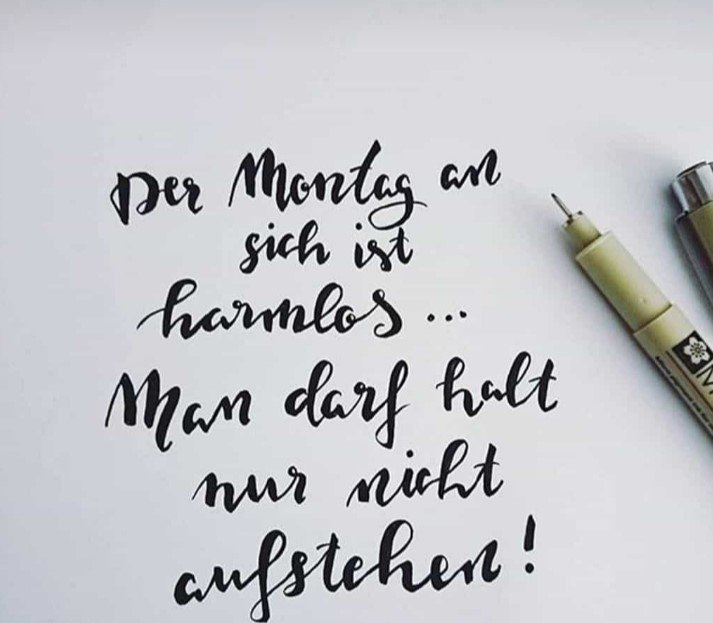 Der Montag an
sich ist
harmlos...
Man darf halt
nur nicht
aufstehen!